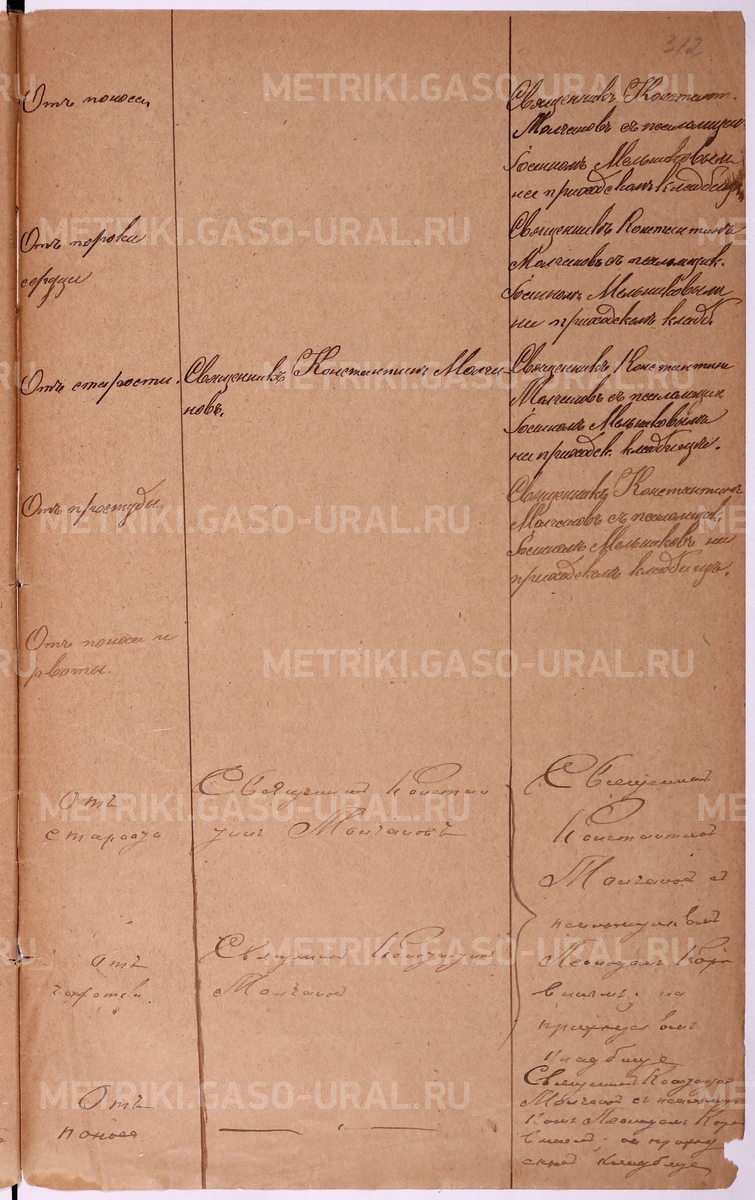 312
Отъ поноса
Священникъ Констант.
Молчановъ съ псаломщик.
Іоанномъ Мельниковымъ
на приходскомъ кладбищѣ
Отъ порока
сердца
Священникъ Константинъ
Молчановъ съ псаломщик.
Іоанномъ Мельниковымъ
на приходскомъ кладб.
Отъ старости.
Священникъ Константинъ Молча-
новъ.
Священникъ Константинъ
Молчановъ съ псаломщик
Іоанномъ Мельниковымъ
на приходск. кладбищѣ.
Отъ простуды
Священникъ Константинъ
Молчановъ съ псаломщик.
Іоанномъ Мельниковъ на
приходскомъ кладбищѣ.
Отъ поноса и
рвоты.
Отъ
старости
Священникъ Констан
тинъ Молчановъ
Священникъ
Константинъ
Молчановъ съ
псаломщикомъ
Леонидомъ
на
приходскомъ
кладбище
Отъ
чахотки.
Священникъ Константинъ
Молчановъ
Отъ
поноса
Священникъ Константинъ
Молчановъ съ псаломщи
комъ Леонидомъ
на приход
ском кладбище
METRIKI.GASO-URAL.RU